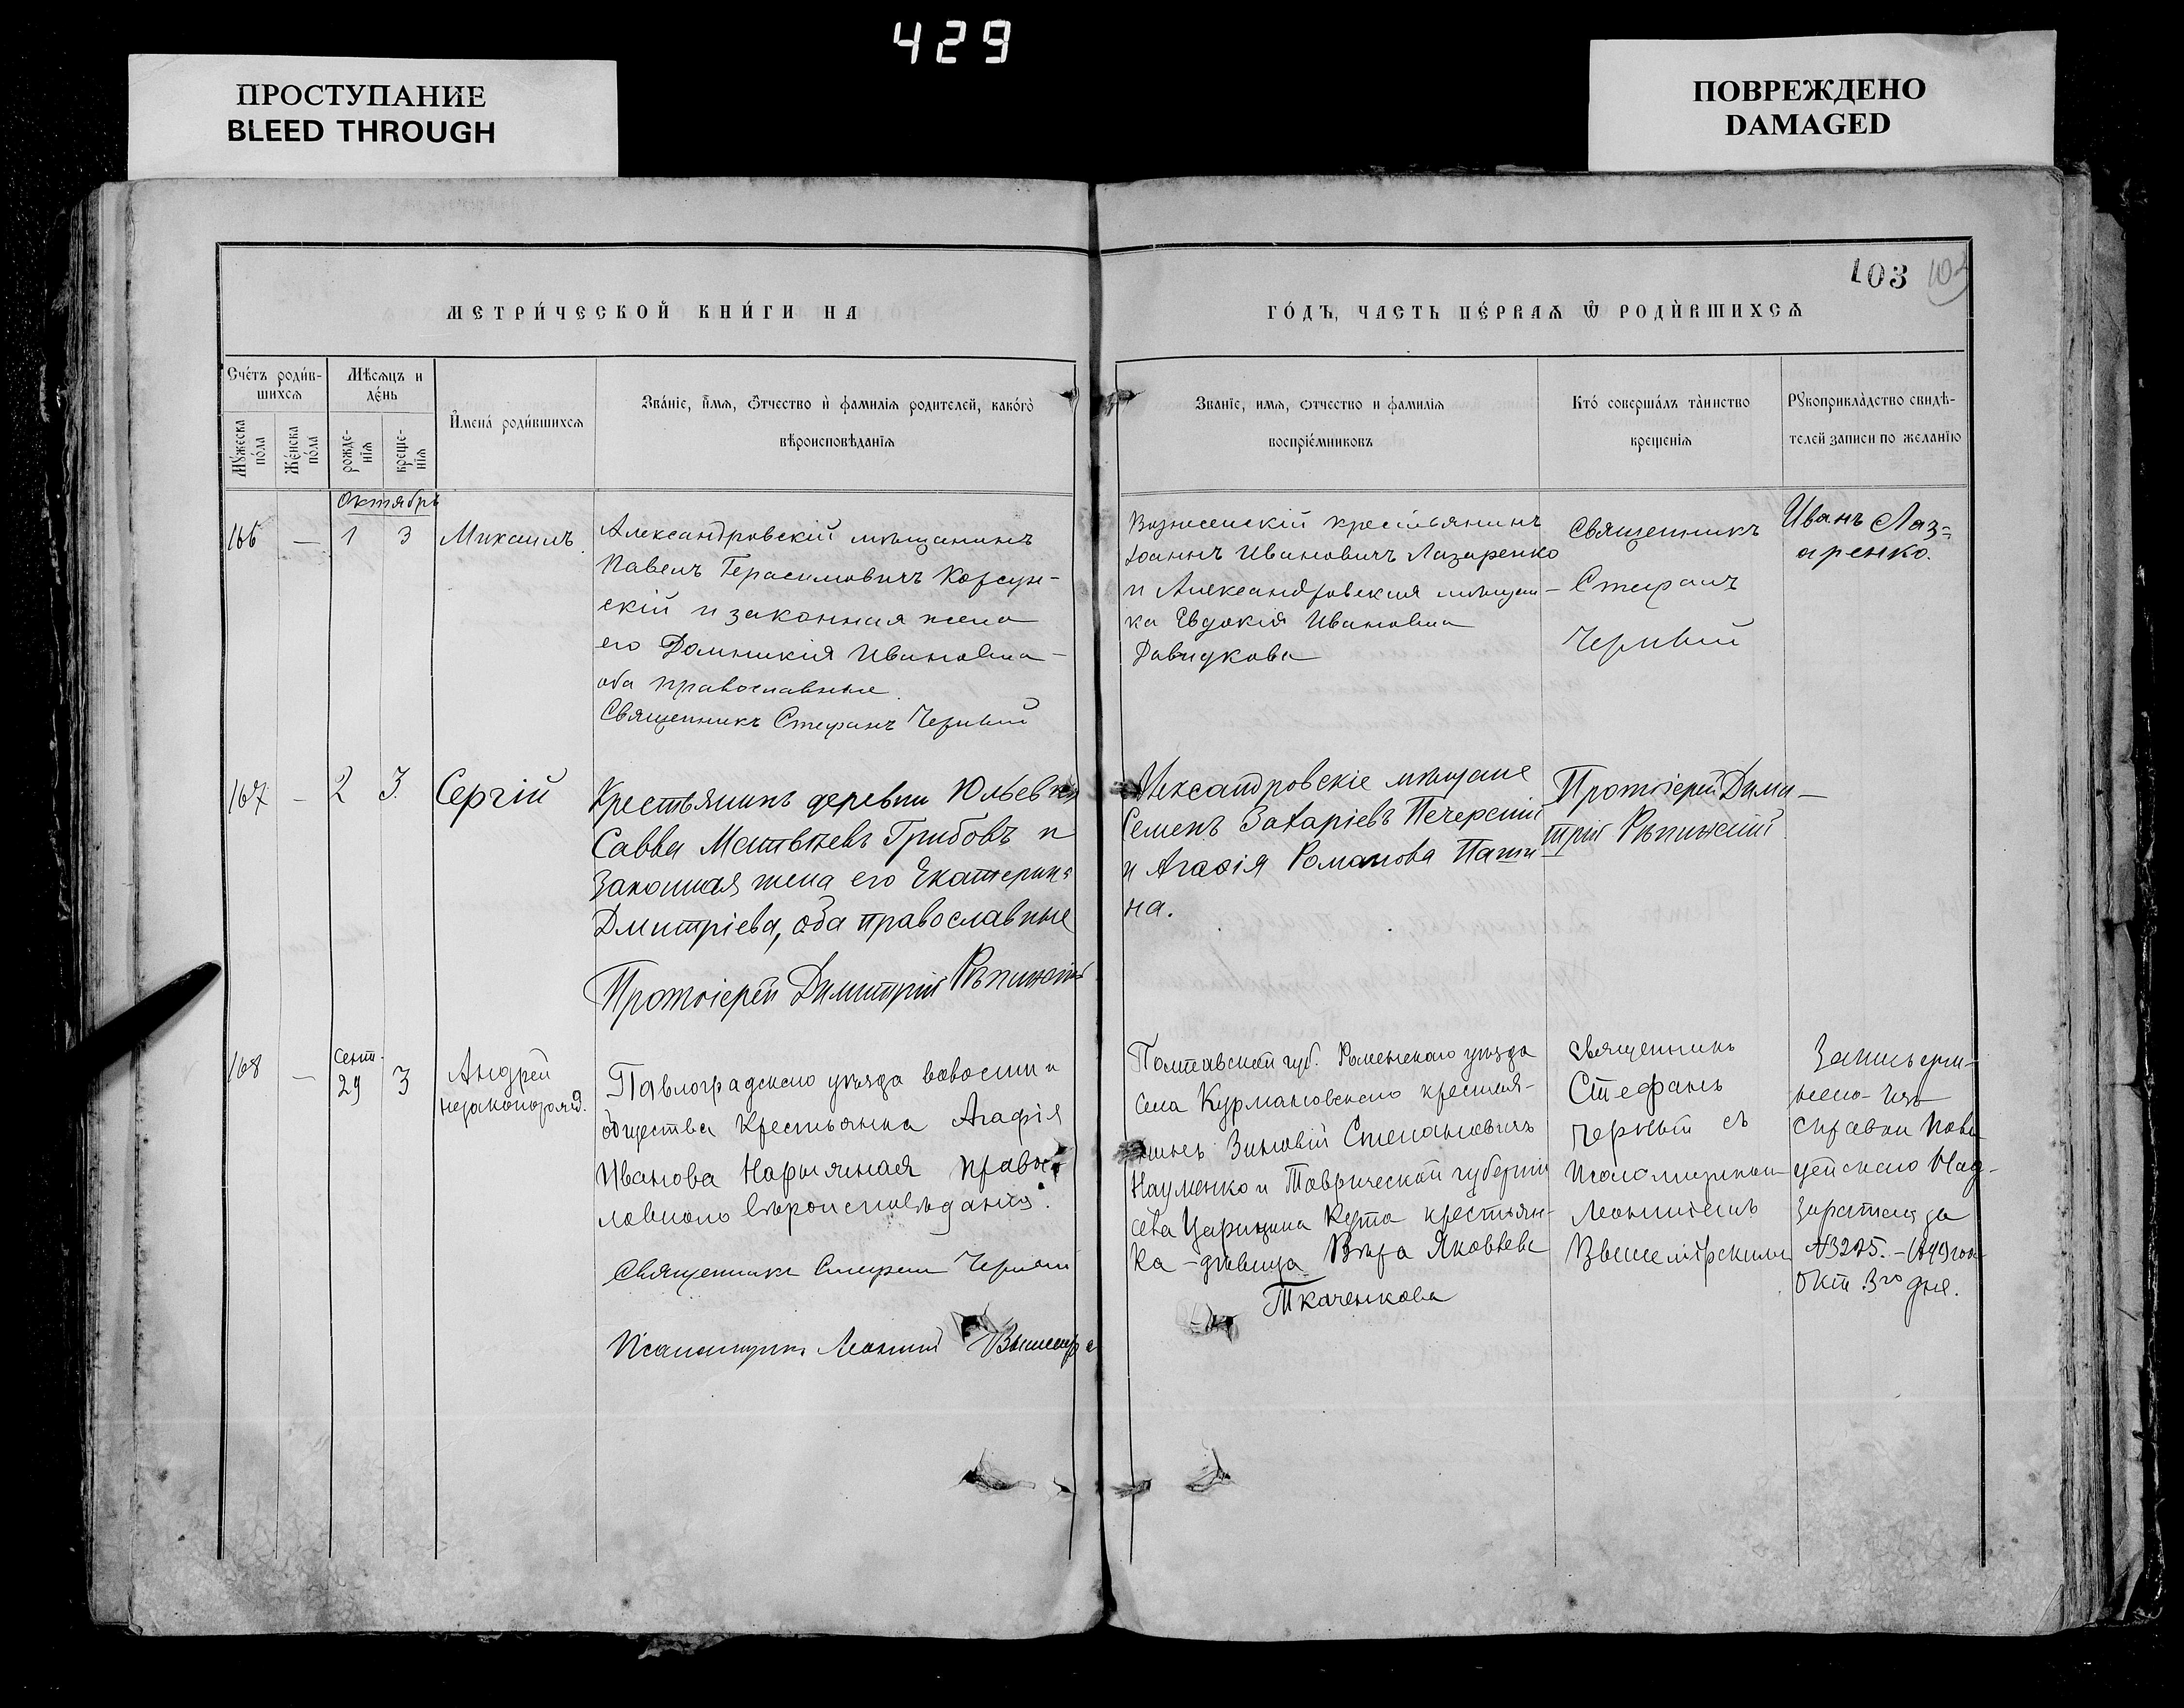 429
ПРОСТУПАНИЕ
BLEED THROUGH
ПОВРЕЖДЕНО
DAMAGED
103
МЕТРИ́ЧЕСКОЙ КНИ́ГИ НА
ГО́ДЪ, ЧАСТЬ ПЕ́РВАѦ Ѿ РОДИ́ВШИХСѦ
Сче́тъ роди́в-
шихсѧ
Мѣсѧцъ и
де́нь
Мꙋжеска
по́ла
Же́нска
по́ла
рожде-
нїѧ
креще-
нїѧ
Имена́ роди́вшихсѧ
Зва́нїе, и́мѧ, ѻтчество и фамилїѧ родителей, како́гѡ
вѣроисповѣданїѧ
Званїе, имѧ, ѻтчество и фамилїѧ
воспрїе́мниковъ
Кто́ соверша́лъ та́инство
крещенїѧ
Рꙋкоприкла́дство свидѣ-
телей записи по желанїю
Октябрь
166 — 1 3 Михаилъ
Александровскій мѣщанинъ
Павелъ Герасимовичъ Корсун-
скій и законная жена
его Домникія Ивановна —
оба православные.
Священникъ Стефанъ Черный
Вознесенскій крестьянинъ
Іоаннъ Ивановичъ Лазаренко
и Александровская мѣщан-
ка Евдокія Ивановна
Давидкова
Священникъ
Стефанъ
Черный
Иванъ Лаз=
аренко.
167 — 2 3. Сергій
Крестьянинъ деревни Юльевки
Савва Матвѣевъ Грибовъ и
законная жена его Екатерина
Дмитріева, оба православные
Протоіерей Димитрій Рѣпинскій
Александровскіе мѣщане
Семенъ Захаріевъ Печерскій
и Агаѳія Романова
на.
Протоіерей Дими-
трій Рѣпинскій
168 — Сент. 29 3
Андрей
незаконорожд.
Павлоградскаго уѣзда волости и
общества крестьянка Агафія
Иванова Нарыжная правос-
лавнаго вѣроисповѣданія.
Священникъ Стефанъ Черный
Псаломщикъ Леонтій
Полтавской губ. Роменскаго уѣзда
села Курмановскаго крестья-
нинъ Зиновій Степановичъ
Науменко и Таврической губерніи
села Царицына Кута крестьян-
ка - дѣвица Вѣра Яковлева
Ткаченкова
Священникъ
Стефанъ
Черный съ
псаломщикомъ
Леонтіемъ
Запись
изъ
справки Поли-
цейскаго Над-
зирателя за
№3205. —
Окт. 3го дня.